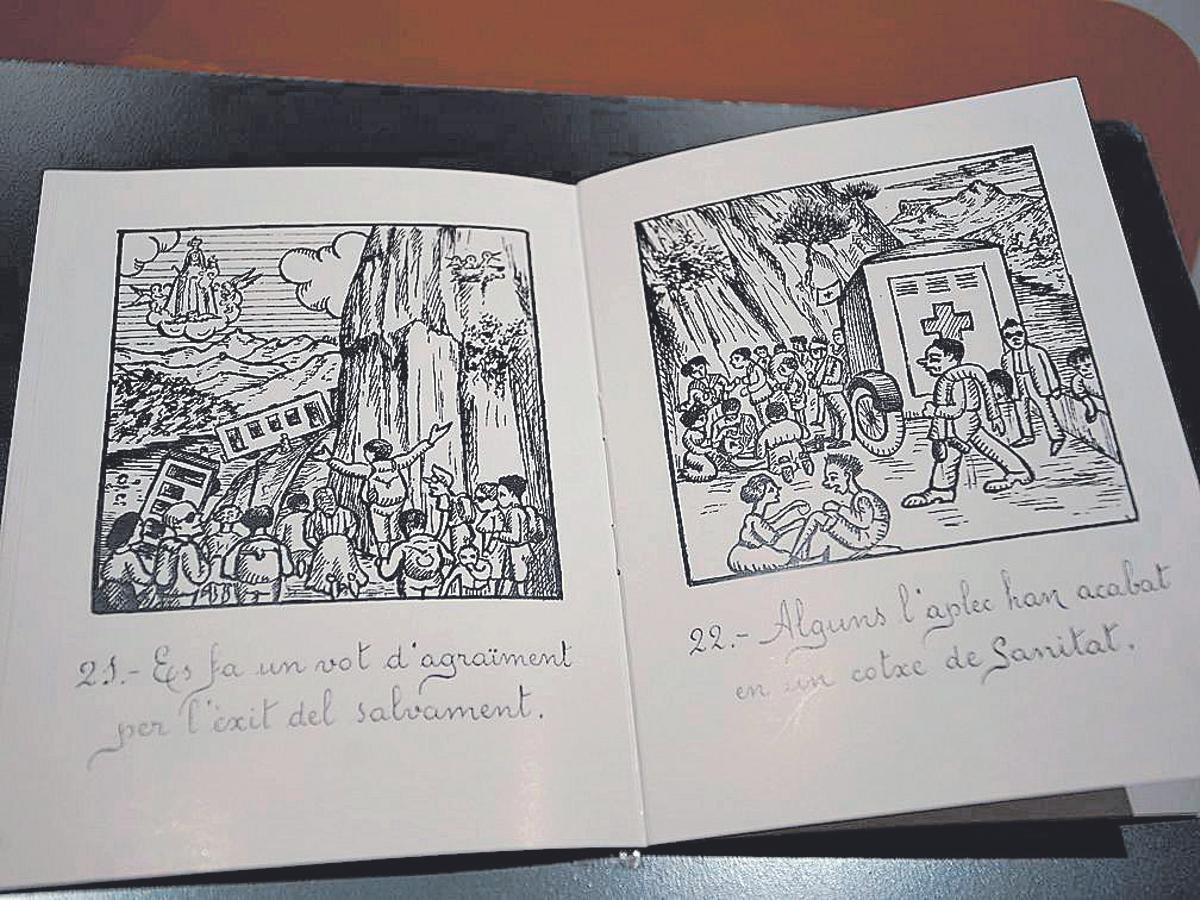 21.- Es fa un vot d'agraïment
per l'èxit del salvament.
22.- Alguns l'aplec han acabat
en un cotxe de Sanitat.